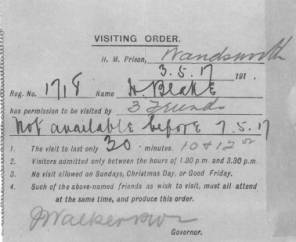 VISITING ORDER.
H. M. Prison, Wandsworth
3.5.17 191
Reg. No. 1718 Name H Blake
has permission to be visited by 3 Friends
Not available before 7.5.17
1 The visit to last only 30 minutes. 10 to 12 or
2 Visitors admitted only between the hours of 1.30 p.m. and 3.30 p.m.
3 No visit allowed on Sundays, Christmas Day, or Good Friday.
4 Such of the above-named friends as wish to visit, must all attend
at the same time, and produce this order.
Governor.